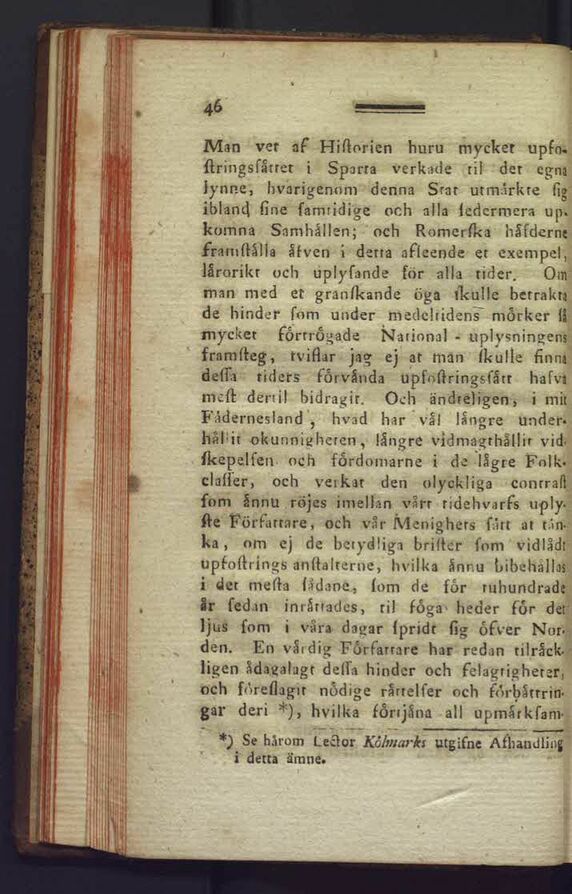 46
Man vet af Hiſtorien huru mycket upfo-
ſtringsſåttet i Sparta verkade til det egna
lynne, hvarigenom denna Stat utmårkte ſig
ibland ſine ſamtidige och alla ſedermera up-
komna Samhållen; och Romerſka håfderne
framſtålla åfven i detta afſeende et exempel,
lårorikt och uplyſande för alla tider. Om
man med et granſkande öga ſkulle betrakta
de hinder ſom under medeltidens mörker ſå
mycket förtrögade National-uplysningens
framſteg, tviflar jag ej at man ſkulle finna
deſſa tiders förvånda upfoſtringsſått hafva
meſt dertil bidragit. Och ändteligen, i mit
Fådernesland, hvad har vål långre under-
hållit okunnigheten, långre vidmagthållit vid-
ſkepelſen och fördomarne i de lågre Folk-
claſſer, och verkat den olyckliga contraſt
ſom ånnu röjes imellan vårt tidehvarfs uply-
ſte Författare, och vår Menighets ſått at tån-
ka, om ej de betydliga briſter ſom vidlådt
upfoſtrings anſtalterne, hvilka ånnu bibehållas
i det meſta ſådane, ſom de för tuhundrade
år ſedan inråttades, til föga heder för det
ljus ſom i våra dagar ſpridt ſig öfver Nor-
den. En vårdig Författare har redan tilråck-
ligen ådagalagt deſſa hinder och felagtigheter,
och föreſlagit nödige råttelſer och förbåttrin-
gar deri *), hvilka förtjåna all upmårkſam-
*) Se hårom Lector Kölmarks utgifne Afhandling
i detta ämne.